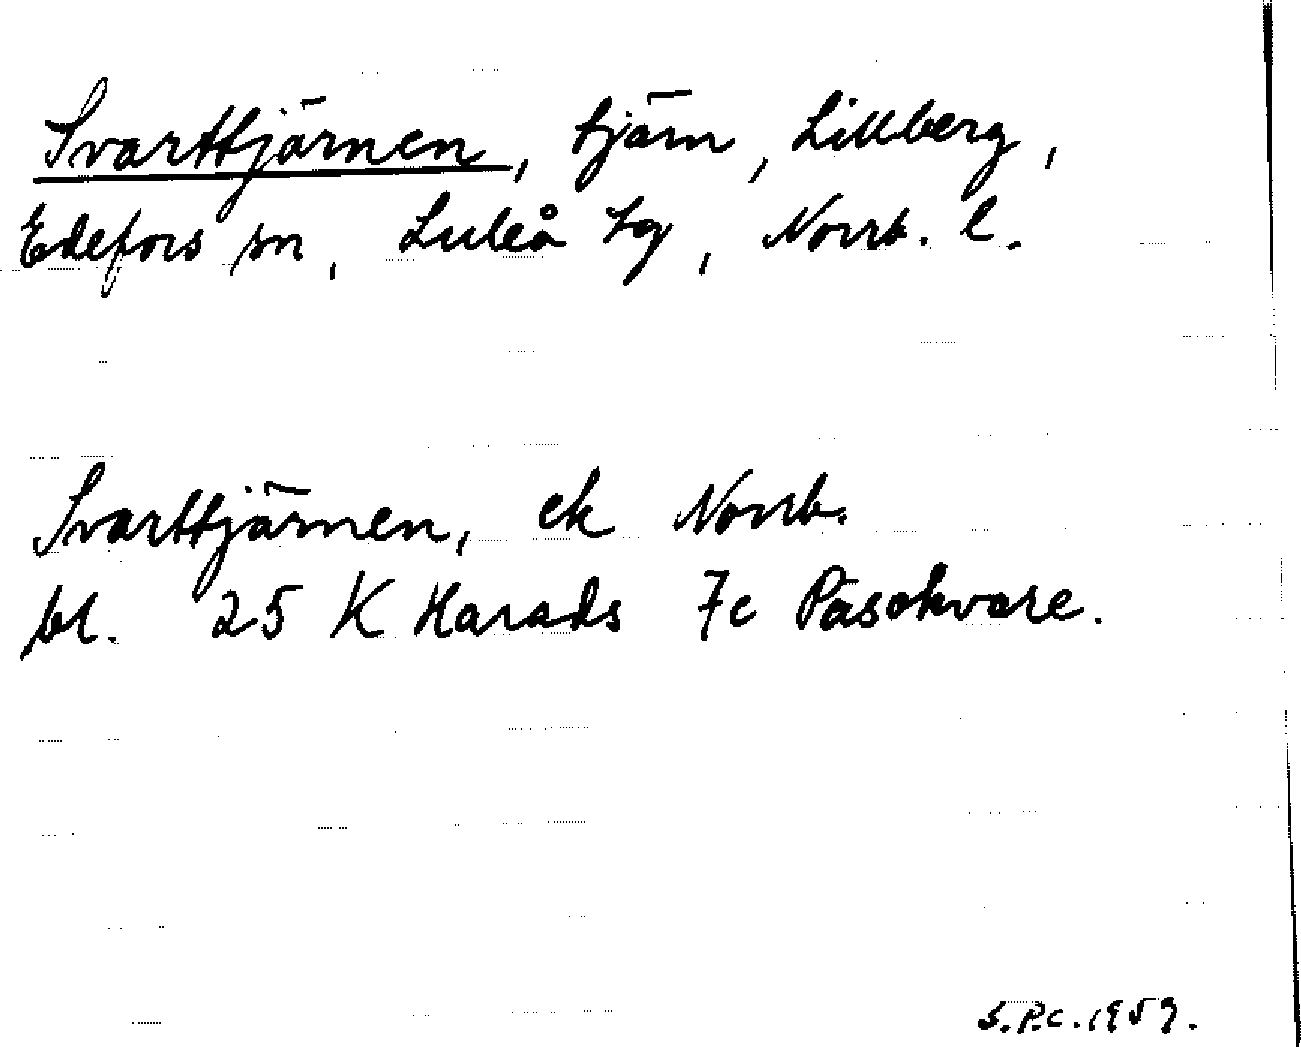 Svarttjärnen, tjärn, Lillberg,
Edefors sn, Luleå tg, Norrb. l.
Svarttjärnen, ek Norrb.
bl. 25 K Harads 7c Päsokvare.
S.P.C. 1959.